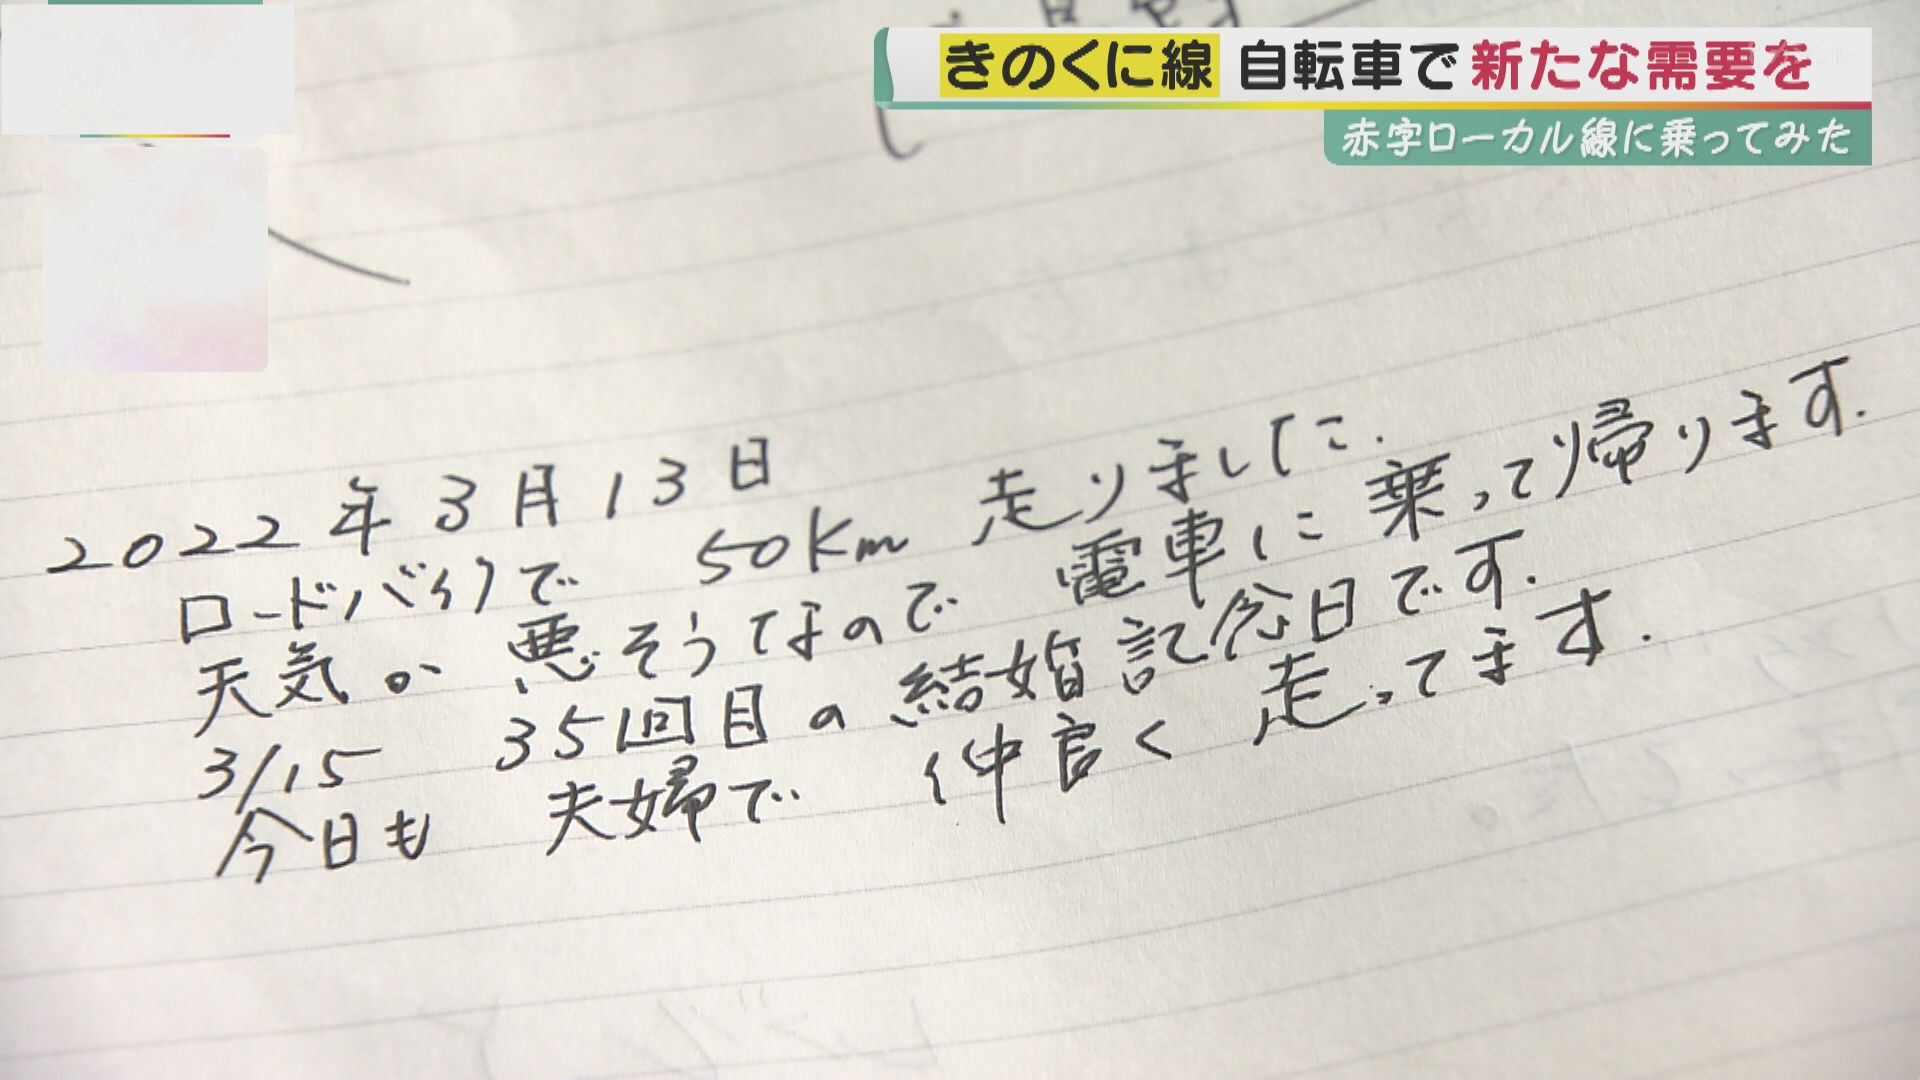 きのくに線 自転車で新たな需要を
赤字ローカル線に乗ってみた
2022年3月13日
ロードバイクで 50Km 走りました.
天気が 悪そうなので 電車に 乗って帰ります.
3/15 35回目の結婚記念日です.
今日も 夫婦で 仲良く 走ってます.